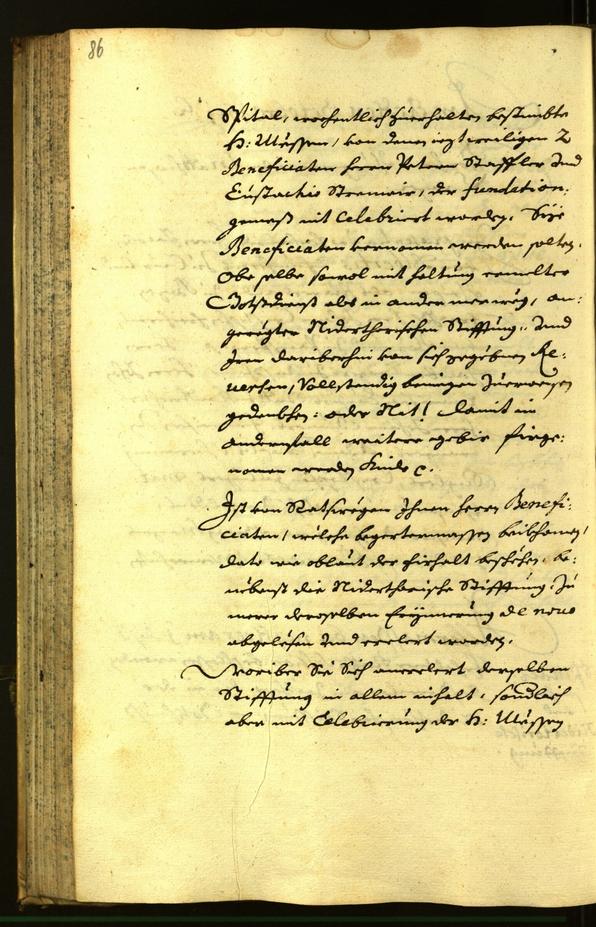 86
Spital, wochentlich zuerhalten bestimbte
H: Mëssen, von denen iezt weiligen 2
Beneficiaten herrn Petern Staffler und
Eustachio Stremair, der fundation:
gemeß nit Celebriert worden. Sÿe
Beneficiaten vernomen werden solten,
Obe selbe sowol mit haltung ermelter
Gotsdienst als in ander meerweg, an:
geregter Niderthorischen Stifftung, und
Iren dariberhin von sich gegebnen Re:
uersen, Volstendig benüegen zuerweisen
gedenkhen: oder Nit! damit in
andernfall weitere gebir firge:
nomen werden kinde c.
Ist von Ratswegen Ihnen herrn Benefi:
ciaten, welche begertermassen beikhomen,
dato wie oblaut der firhalt beschehen, be:
nebenst die Niderthorische Stifftung, zu
merer derselben Erinnerung de nouo
abgelesen und erclert worden.
Woriber Sie Sich anerclert derselben
Stifftung in allem inhalt, sonderlich
aber mit Celebrierung der H: Mëssen